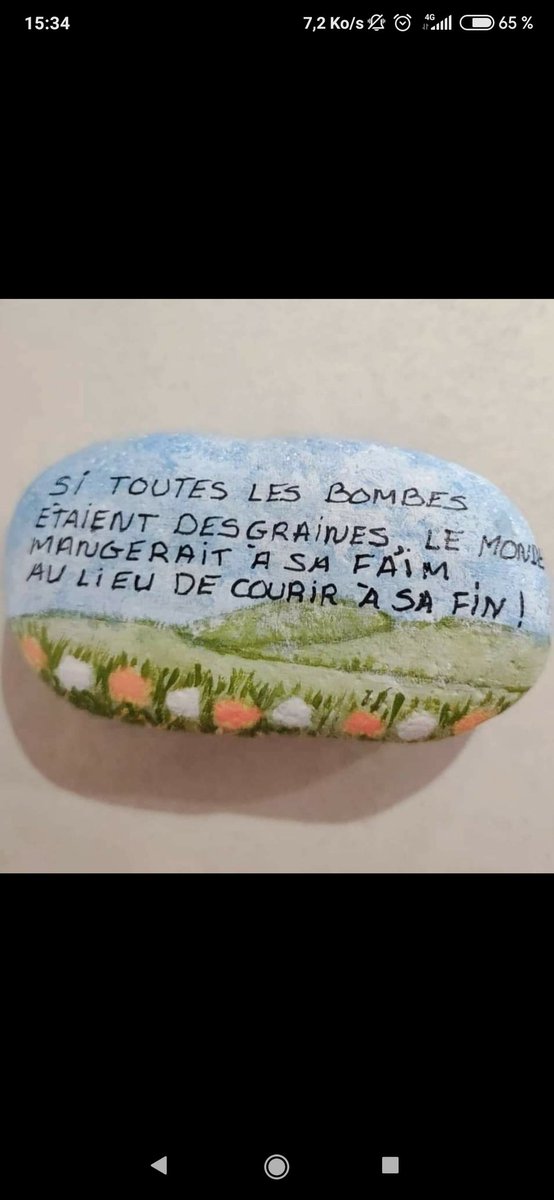 15:34 7,2 Ko/s 4G 65 %
Si TOUTES LES BOMBES
ETAIENT DES GRAINES, LE MONDE
MANGERAIT À SA FAIM
AU LIEU DE COURIR À SA FIN !